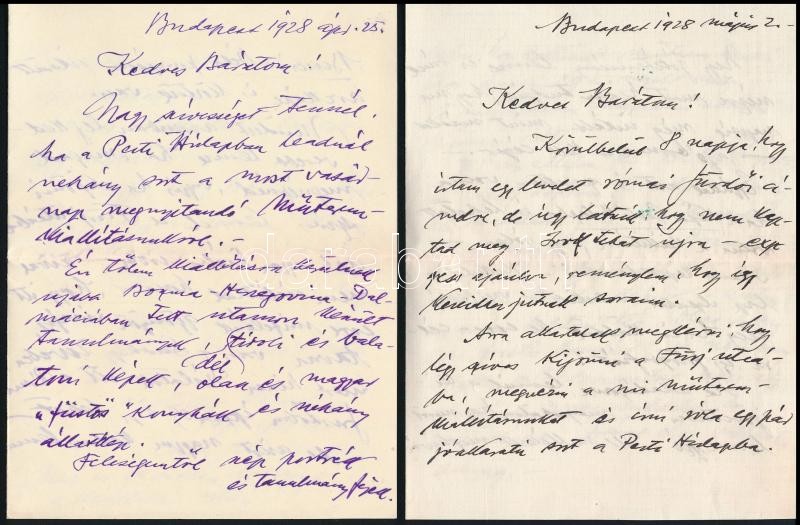 Budapest 1928 ápr. 25.
Kedves Barátom!
Nagy szivességet tennél,
ha a Pesti Hirlapban leadnál
néhány sort a most vasár-
nap megnyitandó Műterem-
kiállításunkról. –
Én tőlem kiállításra kerülnek
ujabb Bosznia-Hercegovina-Dal-
máciában tett utamon készült
tanulmányok, tiroli és bala-
toni képek, dél olasz és magyar
"füstös" konyhák és néhány
állatkép.
Feleségemtől népi portrék
és tanulmány fejek.
Budapest 1928 május 2.–
Kedves Barátom!
Körülbelül 8 napja, hogy
irtam egy levelet római fürdői ci-
medre, de úgy látszik, hogy nem kap-
tad meg. Irok tehát ujra – exp-
ress ajánlva, remélem, hogy így
kezeidhez jutnak soraim.
Arra akartalak megkérni, hogy
légy szives kijönni a Fürj utcá-
ba, megnézni a mi műterem-
kiállításunkat és irni róla egy pár
jóakaratú sort a Pesti Hirlapba.
darabanth